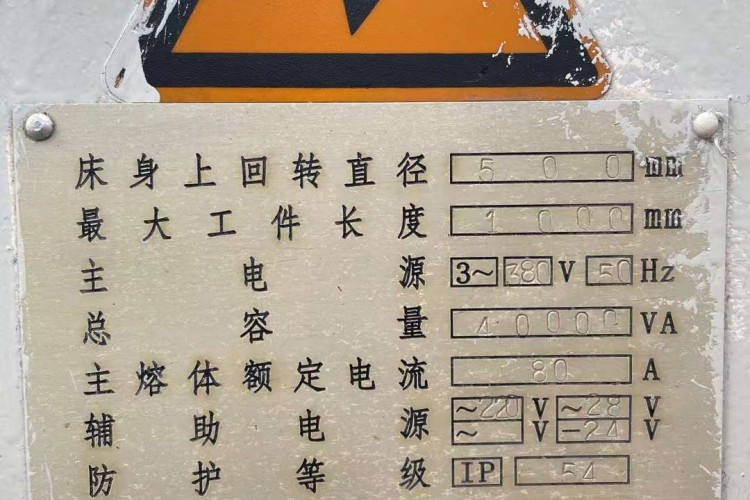 床身上回转直径 500 mm
最大工件长度 1000 mm
主电源 3~ 380 V 50 Hz
总容量 40000 VA
主熔体额定电流 80 A
辅助电源 ~220 V ~28 V
~ V -24 V
防护等级 IP 54